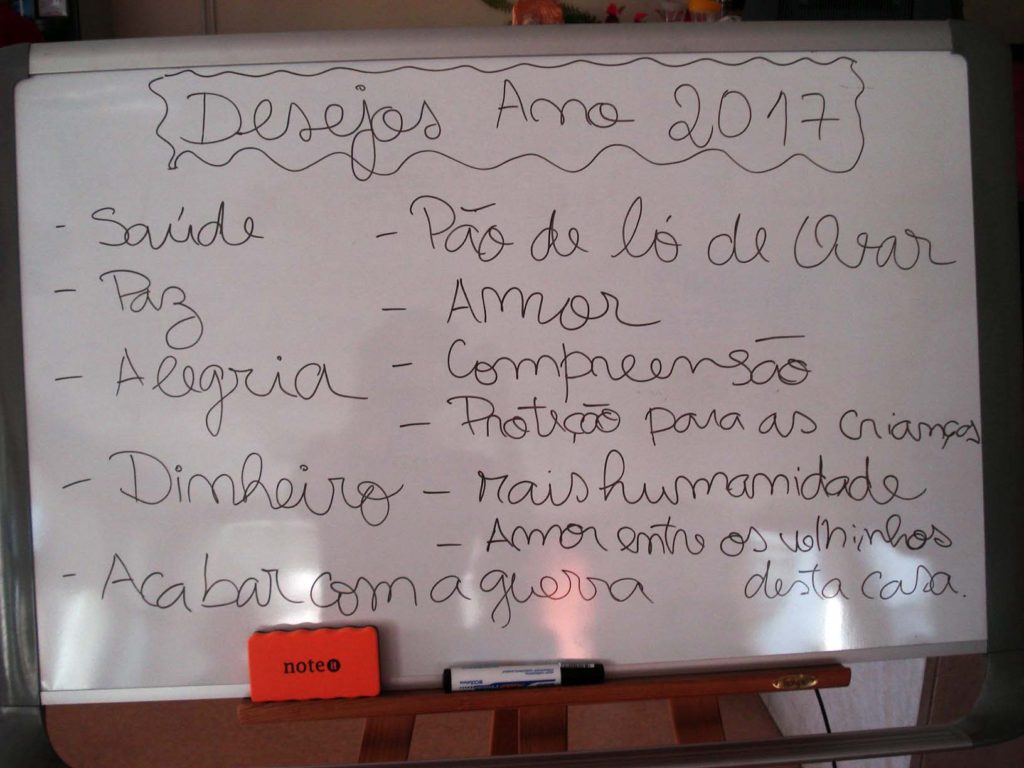 Desejos Ano 2017
- Saúde
- Paz
- Alegria
- Dinheiro
- Acabar com a guerra
- Pão de ló de Ovar
- Amor
- Compreensão
- Proteção para as crianças
- mais humanidade
- Amor entre os velhinhos
desta casa.
note